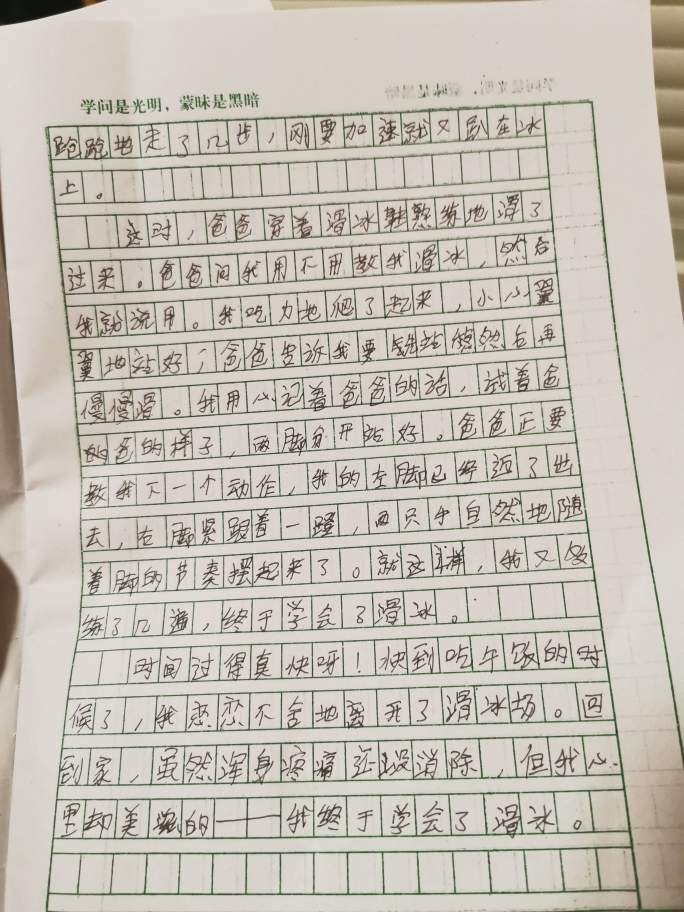 学问是光明，蒙昧是黑暗
跑跑地走了几步，刚要加速就又趴在冰
上。
这时，爸爸穿着滑冰鞋熟练地滑了
过来。爸爸问我用不用教我滑冰，然后
我就说用。我吃力地爬了起来，小心翼
翼地站好，爸爸告诉我要先站稳然后再
慢慢滑。我用心记着爸爸的话，试着爸
爸的样子，两脚分开站好。爸爸正要
教我下一个动作，我的左脚已经迈了出
去，右脚紧跟着一蹬，两只手自然地随
着脚的节奏摆起来了。就这样，我又反
练了几遍，终于学会了滑冰。
时间过得真快呀！快到吃午饭的时
候了，我恋恋不舍地离开了滑冰场。回
到家，虽然浑身疼痛还没消除，但我心
里却美滋的——我终于学会了滑冰。